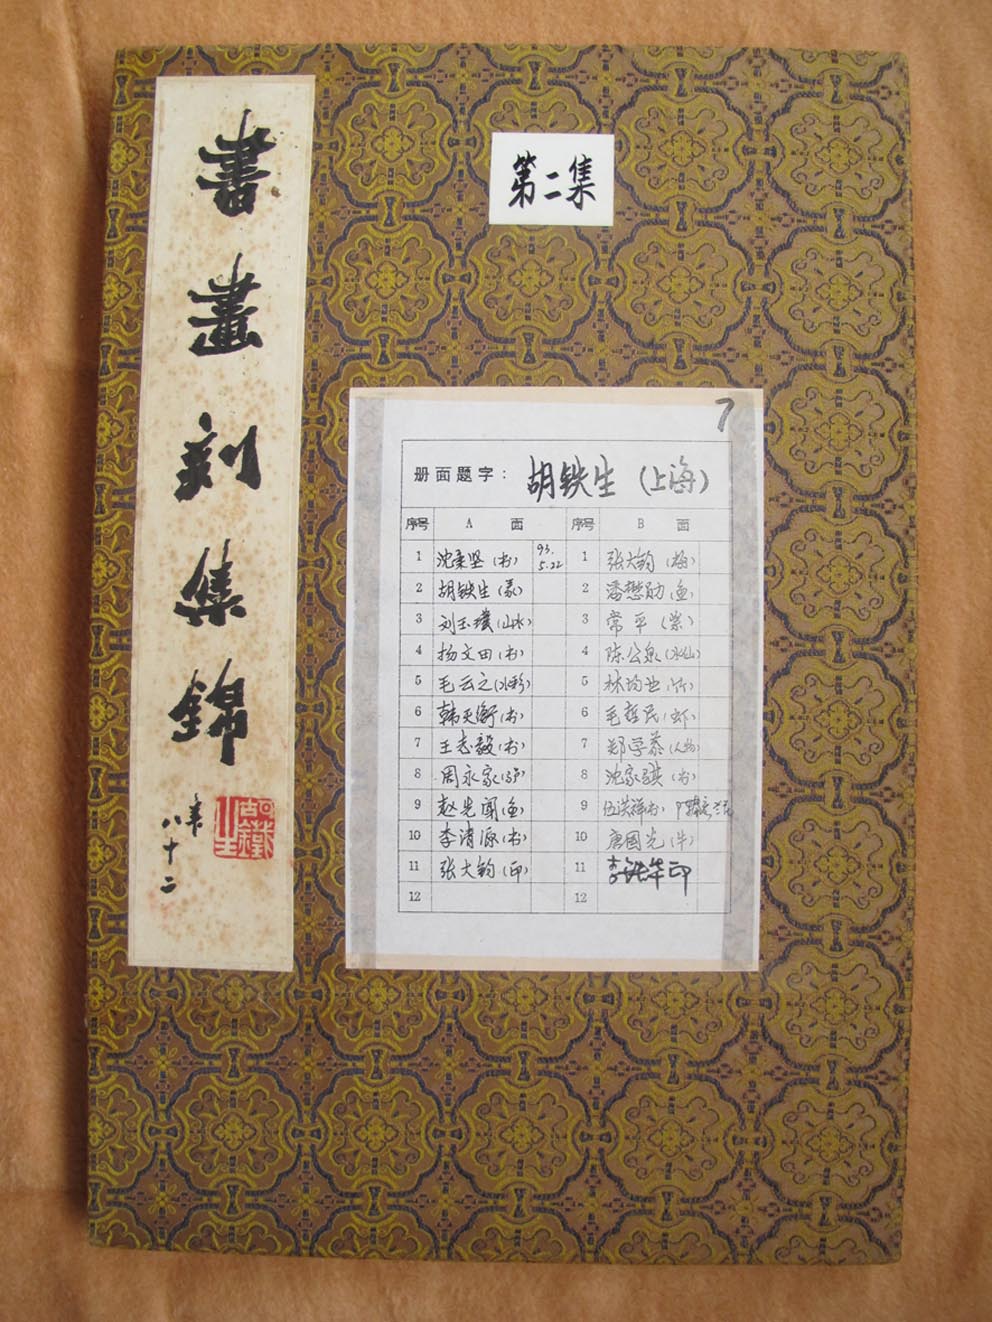 書畫刻集錦
年八十二
第二集
7
册面题字： 胡铁生（上海）
序号 A 面 序号 B 面
1 沈柔坚（书） 93.5.22 1 张大钧（梅）
2 胡铁生（篆） 2 潘懋勋（鱼）
3 刘玉璞（山水） 3 常平（紫）
4 扬文田（书） 4 陈公泉（水仙）
5 毛云之（水彩） 5 林均业（竹）
6 韩天衡（书） 6 毛哲民（虾）
7 王志毅（书） 7 郑学恭（人物）
8 周永家 8 沈家骐（书）
9 赵先闻（鱼） 9 伍洪祥
10 李清源（书） 10 唐国光（牛）
11 张大钧（印） 11 印
12 12